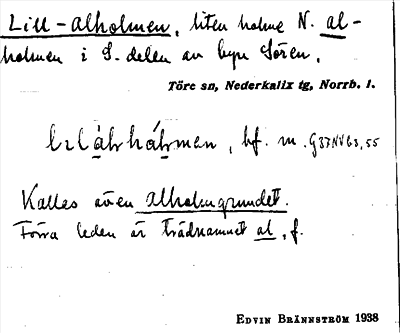 Lill-alholmen, liten holme N. al-
holmen i S. delen av byn Sören.
Töre sn, Nederkalix tg, Norrb. l.
bf. m.
Kallas även Alholmgrundet.
Förra leden är trädnamnet al, f.
EDVIN BRÄNNSTRÖM 1938